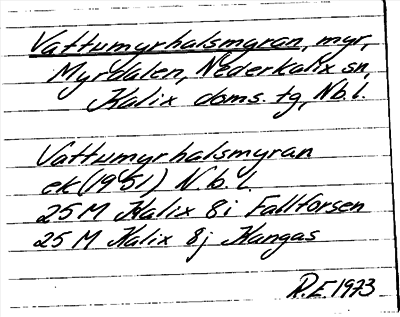 Vattumyrhalsmyran, myr,
Myrdalen, Nederkalix sn,
Kalix doms. tg, Nb. l.
Vattumyrhalsmyran
ek (1951) N. b. l.
25 M Kalix 8i Fallforsen
25 M Kalix 8j Kangas
R.E. 1973